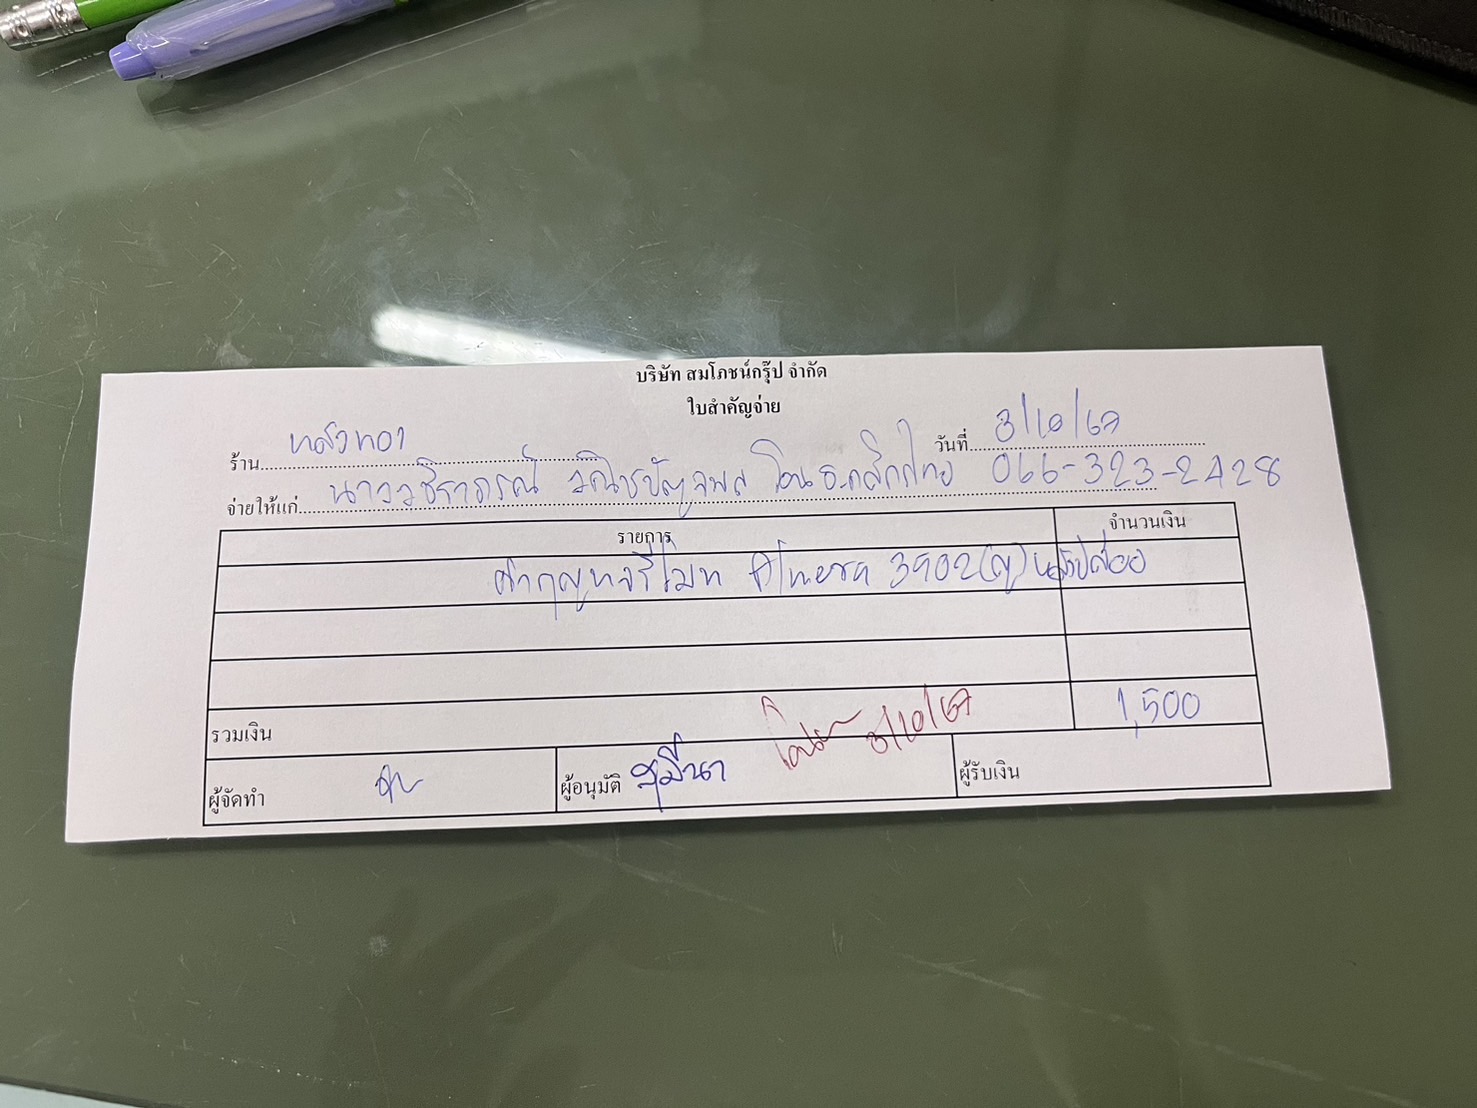 บริษัท สมโภชน์กรุ๊ป จำกัด
ใบสำคัญจ่าย
ร้าน หลังทอง วันที่ 3/10/67
จ่ายให้แก่ นาง โอน ธ.กสิกรไทย 066-323-2428
รายการ จำนวนเงิน
ค่ากุญแจรีโมท Almera 3902
รวมเงิน 1,500
โอน 3/10/67
ผู้จัดทำ ผู้อนุมัติ สุมีนา ผู้รับเงิน